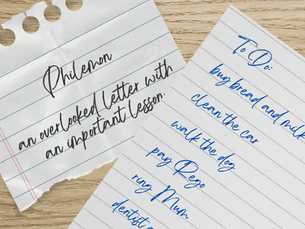 Philemon
an overlooked letter with
an important lesson.
To Do:
buy bread and milk
clean the car
walk the dog
pay Rego
ring Mum
dentist